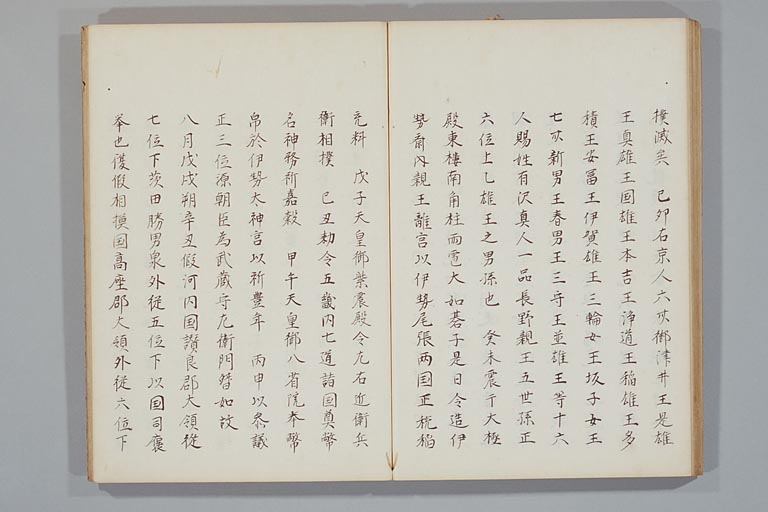 撲滅矣　己卯右京人六世御津井王是雄
王真雄王国雄王本吉王浄道王稲雄王多
積王安冨王伊賀雄王三輪女王坂子女王
七世新男王春男王三守王並雄王等十六
人賜姓有沢真人一品長野親王五世孫正
六位上乙雄王之男孫也　癸未震于大極
殿東樓南角柱雨雹大如碁子是日令造伊
勢斎内親王離宮以伊勢尾張両国正税稲
充料　戊子天皇御紫震殿令左右近衛兵
衛相撲　己丑勅令五畿内七道諸国奠幣
名神務祈嘉穀　甲午天皇御八省院奉幣
帛於伊勢大神宮以祈豊年　丙申以参議
正三位源朝臣為武蔵守左衛門督如故
八月戊戌朔辛丑假河内国讃良郡大領従
七位下茨田勝男泉外従五位下以国司褒
挙也復假相摸国高座郡大領外従六位下